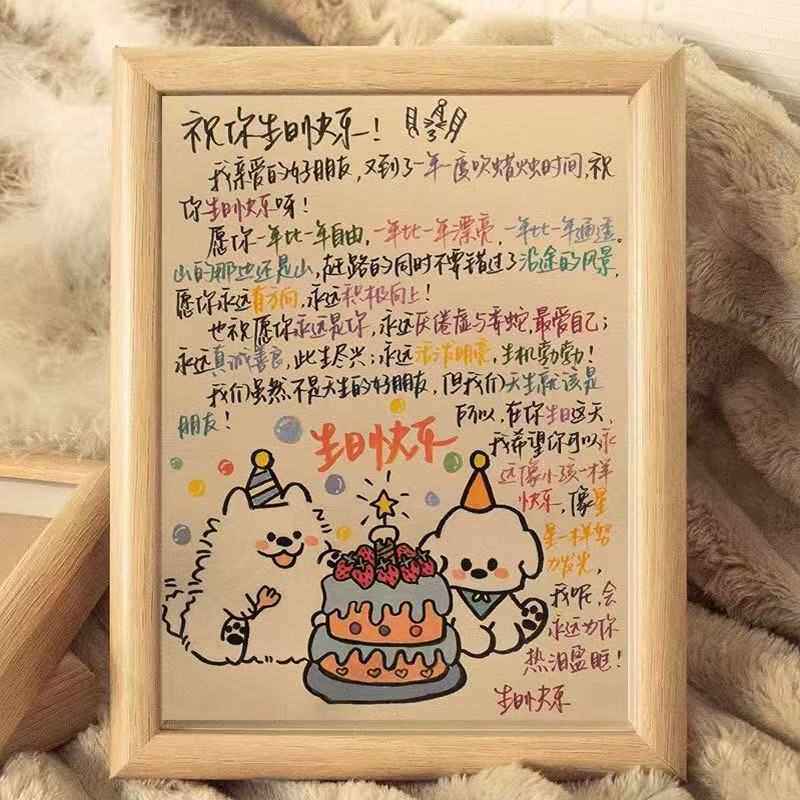 祝你生日快乐！
我亲爱的好朋友，又到了一年一度吹蜡烛时间，祝
你生日快乐呀！
愿你一年比一年自由，一年比一年漂亮，一年比一年通透。
山的那边还是山，赶路的同时不要错过了沿途的风景，
愿你永远有方向，永远积极向上！
也祝愿你永远是你，永远厌倦虚与委蛇，最爱自己；
永远真诚善良，此生尽兴；永远滚滚明亮，生机勃勃！
我们虽然不是天生的好朋友，但我们天生就该是
朋友！
所以，在你生日这天，
我希望你可以永
远像小孩一样
快乐，像星
星一样努
力发光，
我呢，会
永远为你
热泪盈眶！
生日快乐
生日快乐